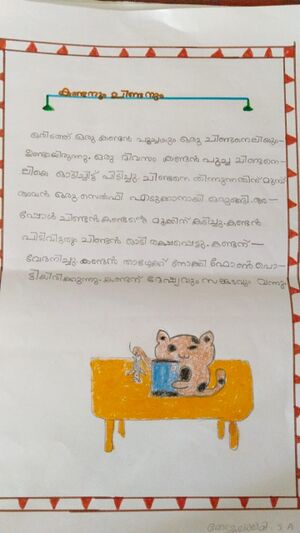 കണ്ടനും ചിണ്ടനും
ഒരിടത്ത് ഒരു കണ്ടൻ പൂച്ചയും ഒരു ചിണ്ടനെലിയും
ഉണ്ടായിരുന്നു. ഒരു ദിവസം കണ്ടൻ പൂച്ച ചിണ്ടനെ-
ലിയെ ഓടിച്ചിട്ട് പിടിച്ചു. ചിണ്ടനെ തിന്നുന്നതിന് മുമ്പ്
അവൻ ഒരു സെൽഫി എടുക്കാനായി ഒരുങ്ങി. അ-
പ്പോൾ ചിണ്ടൻ കണ്ടന്റെ മൂക്കിന് കടിച്ചു. കണ്ടൻ
പിടിവിട്ടതും ചിണ്ടൻ ഓടി രക്ഷപ്പെട്ടു. കണ്ടന് —
വേദനിച്ചു. കണ്ടൻ താഴേക്ക് നോക്കി ഫോൺ പൊ-
ട്ടികിടക്കുന്നു. കണ്ടന് ദേഷ്യവും സങ്കടവും വന്നു.
5 A